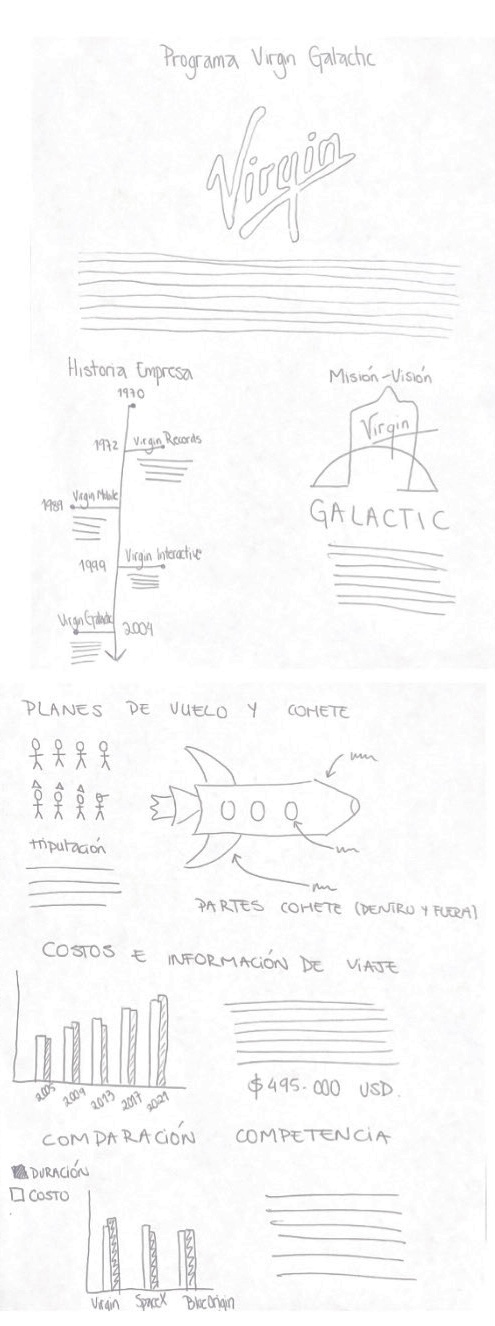 Programa Virgin Galactic
Virgin
Historia Empresa
1970
1972 Virgin Records
1989 Virgin Mobile
1999 Virgin Interactive
Virgin Galactic 2004
Misión-Visión
Virgin
GALACTIC
PLANES DE VUELO Y COHETE
tripulación
PARTES COHETE (DENTRO Y FUERA)
COSTOS E INFORMACIÓN DE VIAJE
2005 2009 2013 2017 2021
$495.000 USD.
COMPARACIÓN COMPETENCIA
DURACIÓN
COSTO
Virgin SpaceX Blue Origin